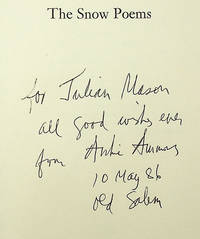 The Snow Poems
for Julian Mason
all good wishes ever
from Archie Ammons
10 May 86
Old Salem